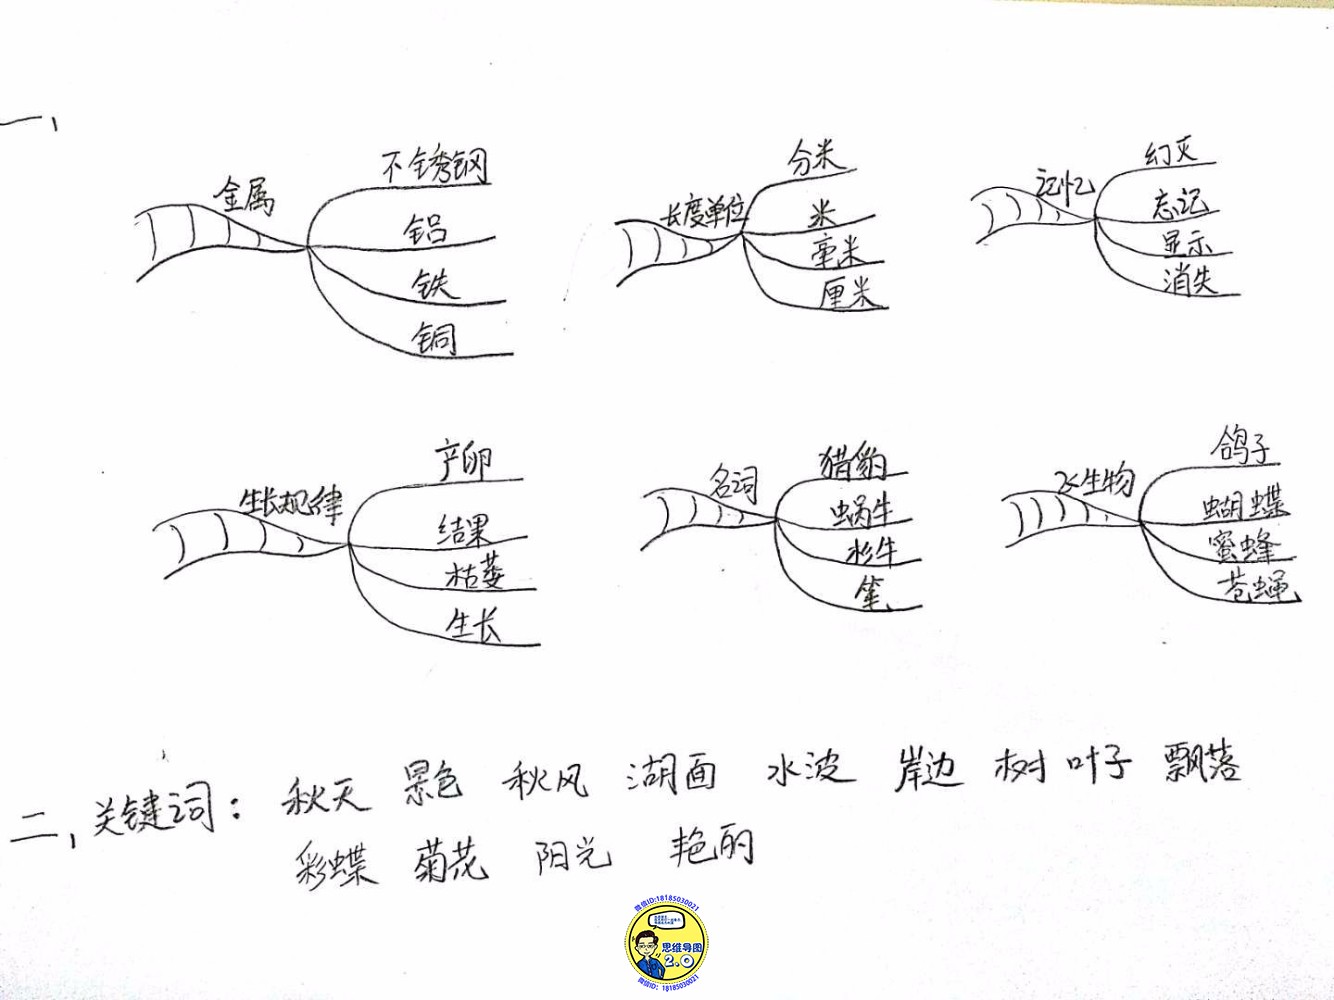 一、
金属
不锈钢
铝
铁
铜
长度单位
分米
米
毫米
厘米
记忆
幻灭
忘记
显示
消失
生长规律
产卵
结果
枯萎
生长
名词
猎豹
蜗牛
杉牛
笔
飞生物
鸽子
蝴蝶
蜜蜂
苍蝇
二、关键词: 秋天 景色 秋风 湖面 水波 岸边 树 叶子 飘落
彩蝶 菊花 阳光 艳丽
微信ID:18185030021
思维导图
2.0
微信ID: 18185030021